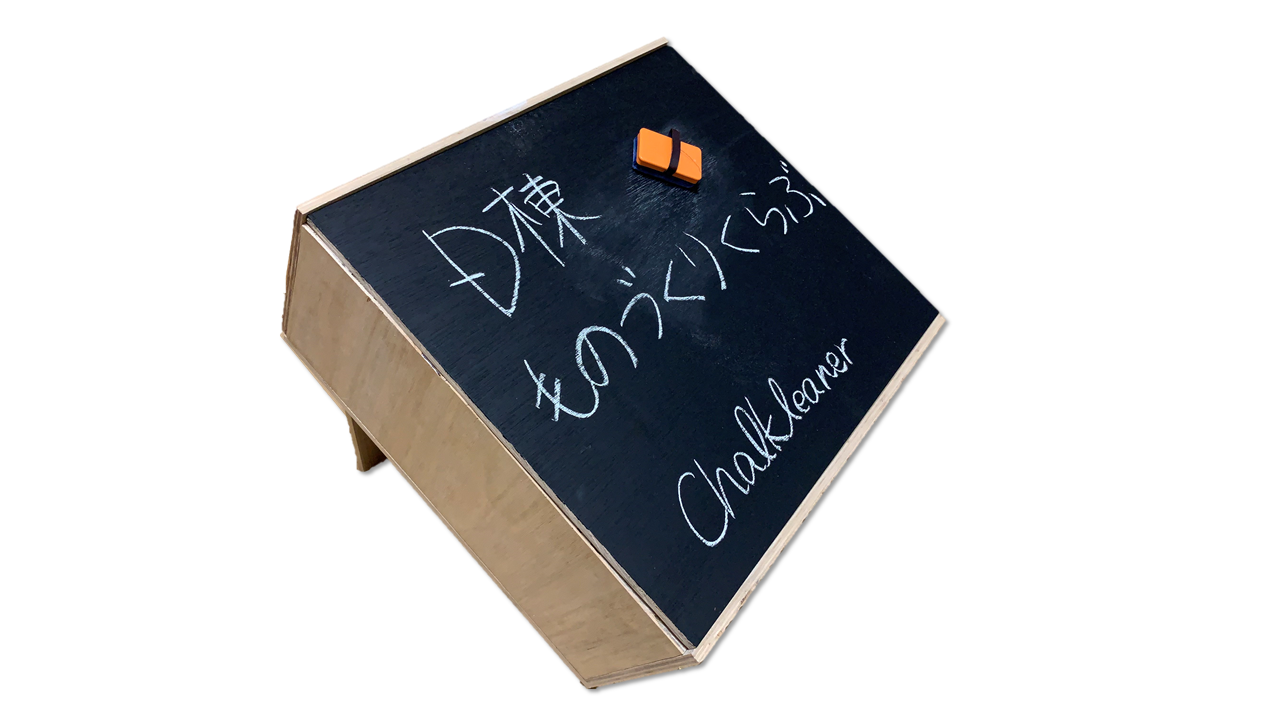 D棟
ものづくりくらぶ
Chalkleaner